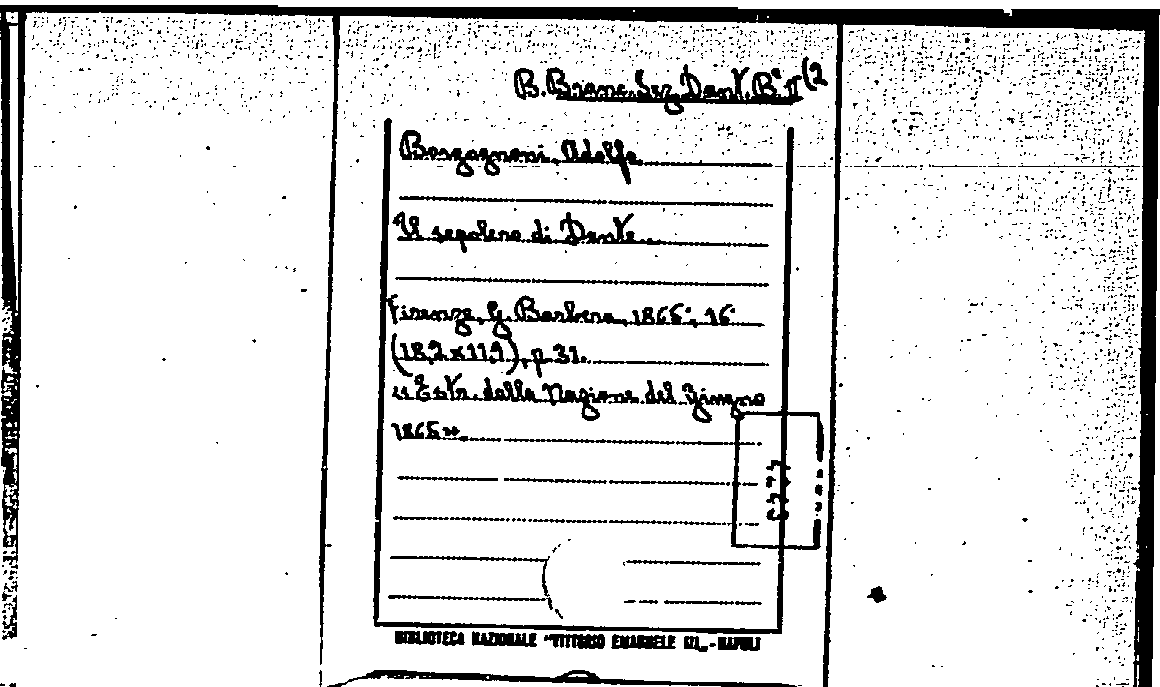 B. Branc. Sez. Dant. B. II (2
Borgognoni, Adolfo
Il sepolcro di Dante.
Firenze, G. Barbèra, 1865, 16°
(18,2 x 11,9), p. 31.
«Estr. dalla Nazione del Giugno
1865».
BIBLIOTECA NAZIONALE "VITTORIO EMANUELE III„ - NAPOLI